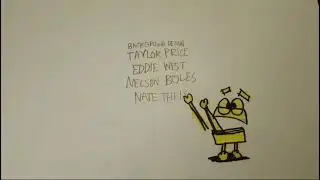 BACKGROUND DESIGN
TAYLOR PRICE
EDDIE WEST
NELSON BOLES
NATE THEIS